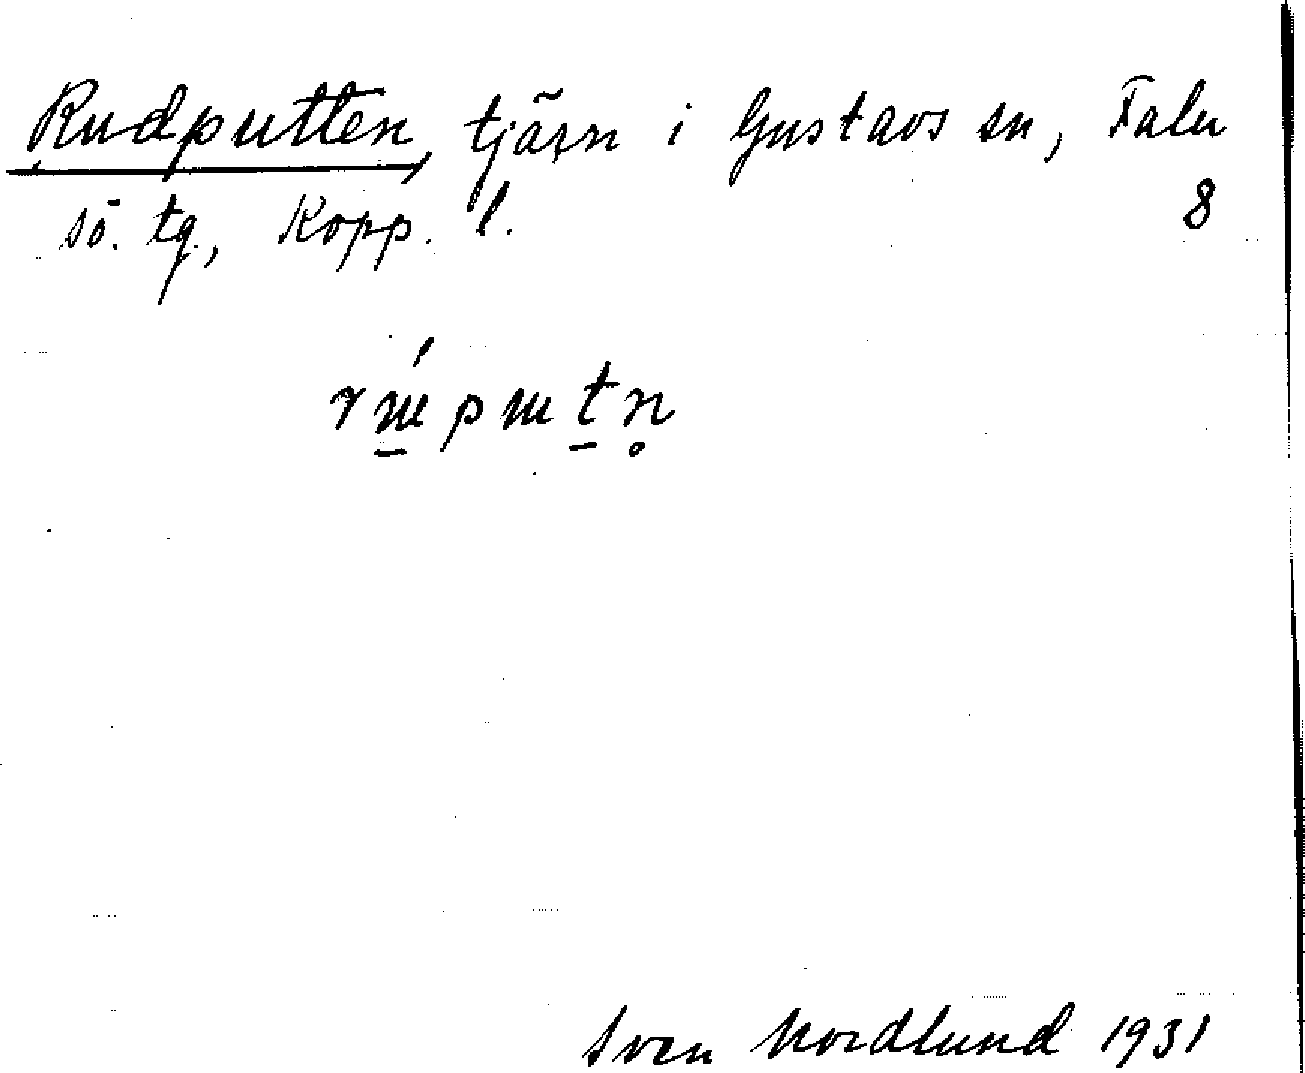 Rudputten, tjärn i Gustavs sn, Falu
sö. tg, Kopp. l. 8
Sven Nordlund 1931